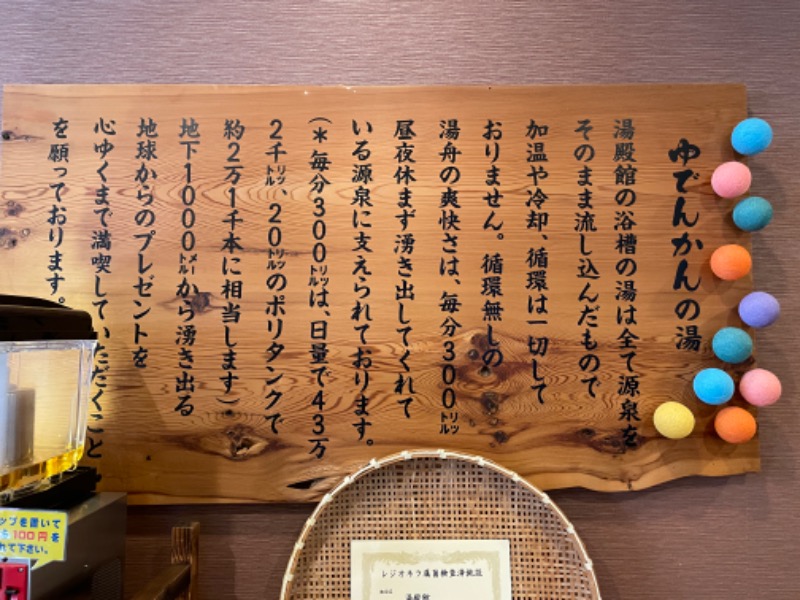 ゆでんかんの湯
湯殿館の浴槽の湯は全て源泉を
そのまま流し込んだもので
加温や冷却、循環は一切して
おりません。循環無しの
湯舟の爽快さは、毎分300㍑
昼夜休まず湧き出してくれて
いる源泉に支えられております。
(*毎分300㍑は、日量で43万
2千㍑、20㍑のポリタンクで
約2万1千本に相当します)
地下1000㍍から湧き出る
地球からのプレゼントを
心ゆくまで満喫していただくこと
を願っております。
ップを置いて
100円を
れて下さい。
レジオネラ属菌検査済施設
湯殿館